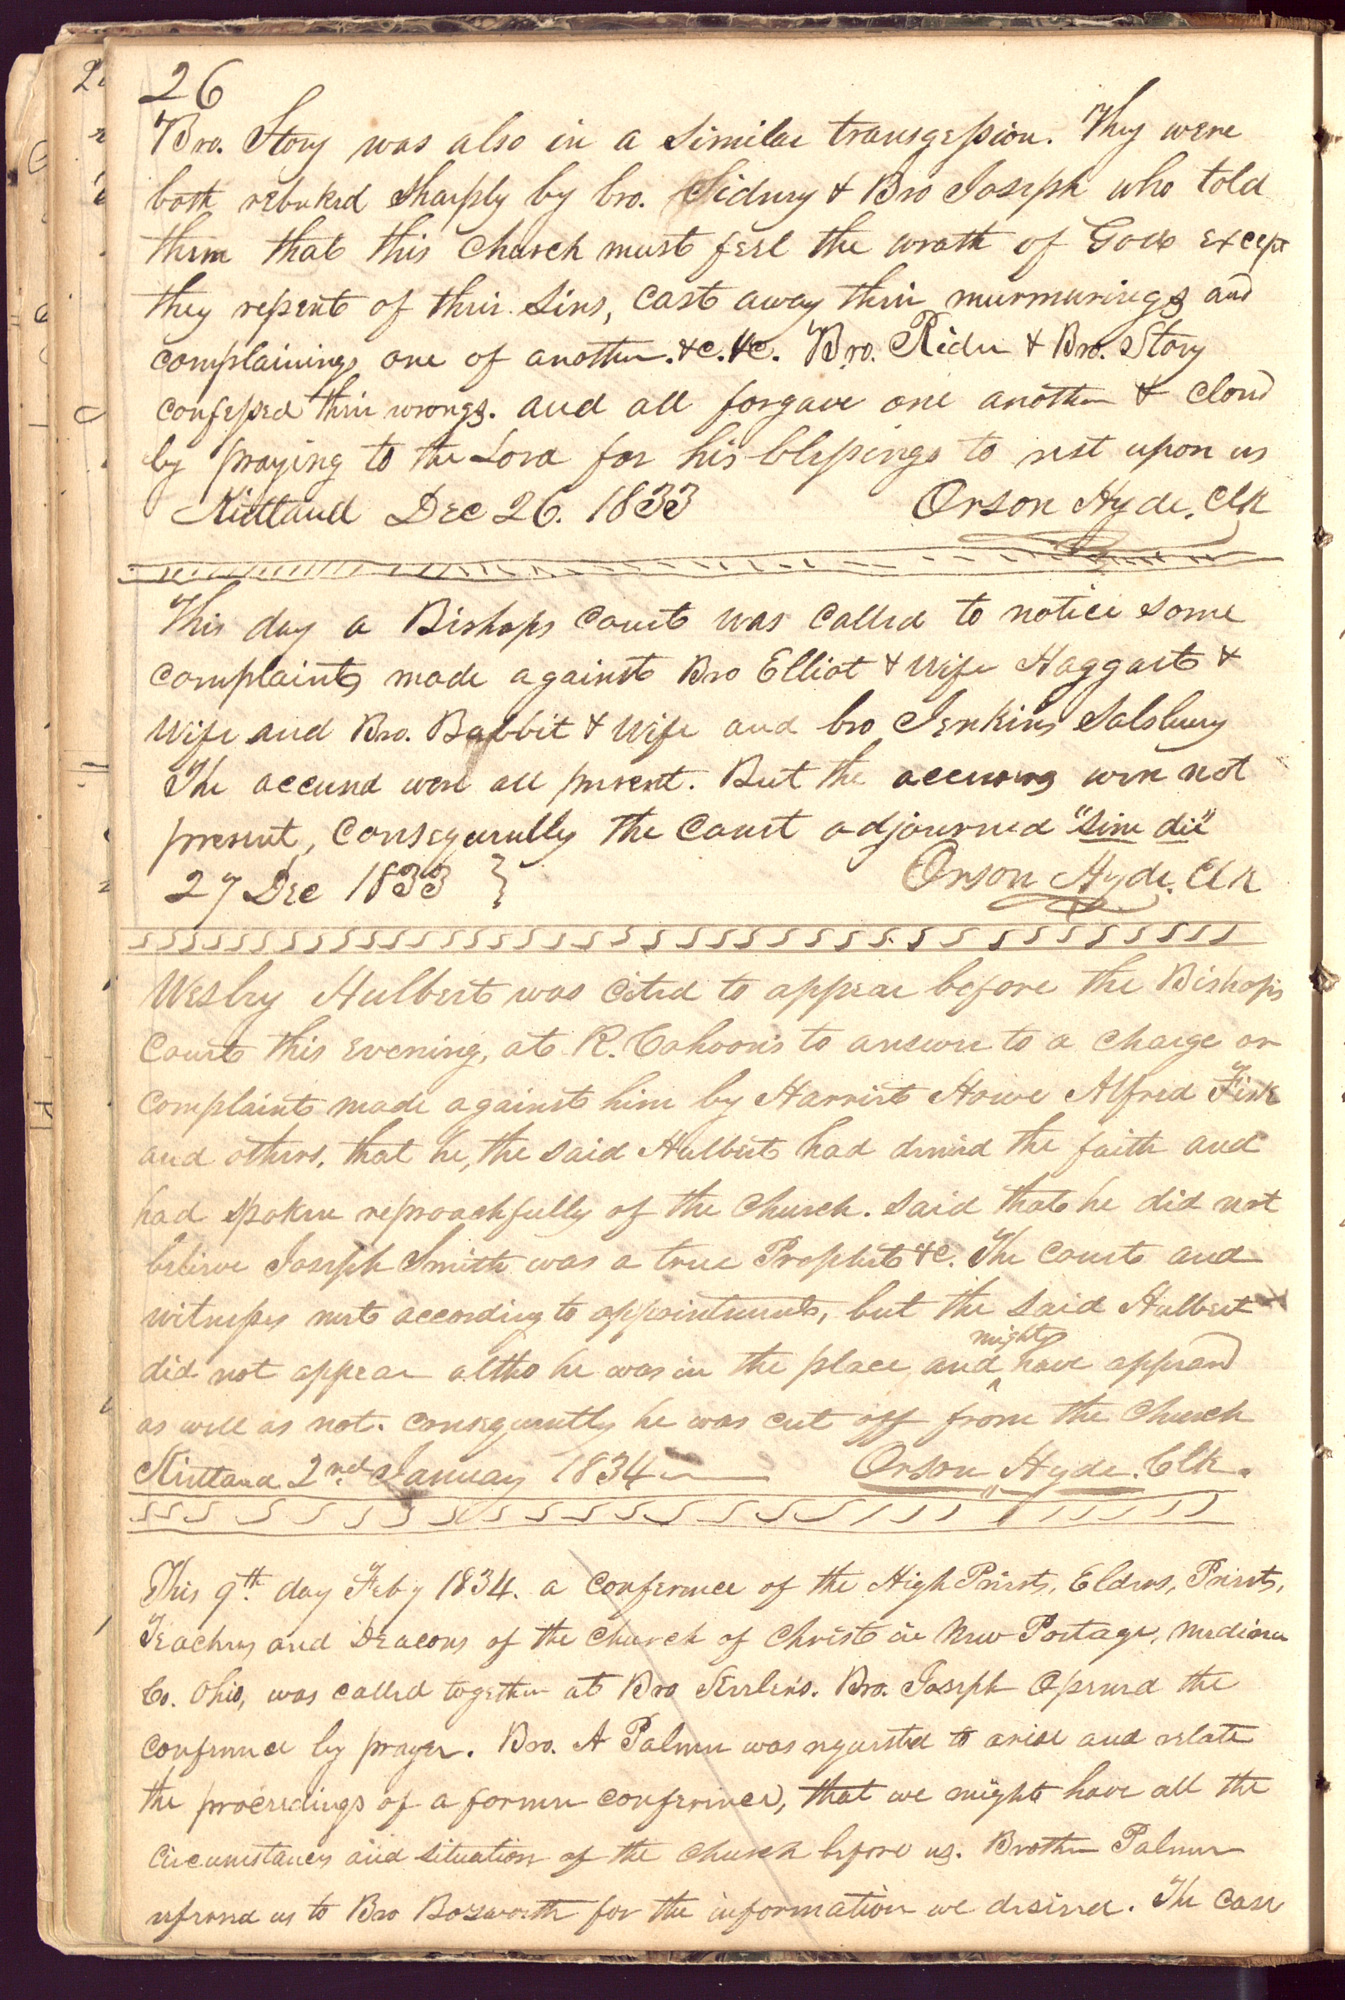 26
Bro. Story was also in a similar transgession. They were
both rebuked sharply by bro. Sidney & Bro Joseph who told
them that this Church must feel the wrath of God except
they repent of their sins, cast away their murmurings and
complainings one of another. &c. &c. Bro. Rider & Bro. Story
confessed their wrongs. and all forgave one another & closed
by praying to the Lord for his blessings to rest upon us
Kirtland Dec 26. 1833 Orson Hyde. Clk
This day a Bishops court was called to notice some
complaints made against Bro Elliot & wife Haggart &
wife and Bro. Babbit & wife and bro Jenkins Salsbury
The accused were all present. But the accusers were not
present, consequently the court adjourned "sine die"
27 Dec 1833 } Orson Hyde. Clk
Wesley Hulbert was cited to appear before the Bishop's
Court this evening, at R. Cahoon's to answer to a charge or
complaint made against him by Harriet Howe Alfred Fisk
and others. that he, the said Hulbert had denied the faith and
had spoken reproachfully of the church. said that he did not
believe Joseph Smith was a true Prophet &c. The court and
witnesses met according to appointment, but the said Hulbert
did not appear altho he was in the place and might have appeard
as well as not. consequently he was cut off from the church
Kirtland 2nd January 1834 Orson Hyde. Clk.
This 9th. day Feby 1834. a conference of the High Priests, Elders, Priests,
Teachers and Deacons of the church of Christ in New Portage, Medina
Co. Ohio, was called together at Bro Kirlin's. Bro. Joseph opened the
conference by prayer. Bro. A Palmer was requested to arise and relate
the proceedings of a former conference, that we might have all the
circumstances and situation of the church before us. Brother Palmer
refered us to Bro Bosworth for the information we desired. The case